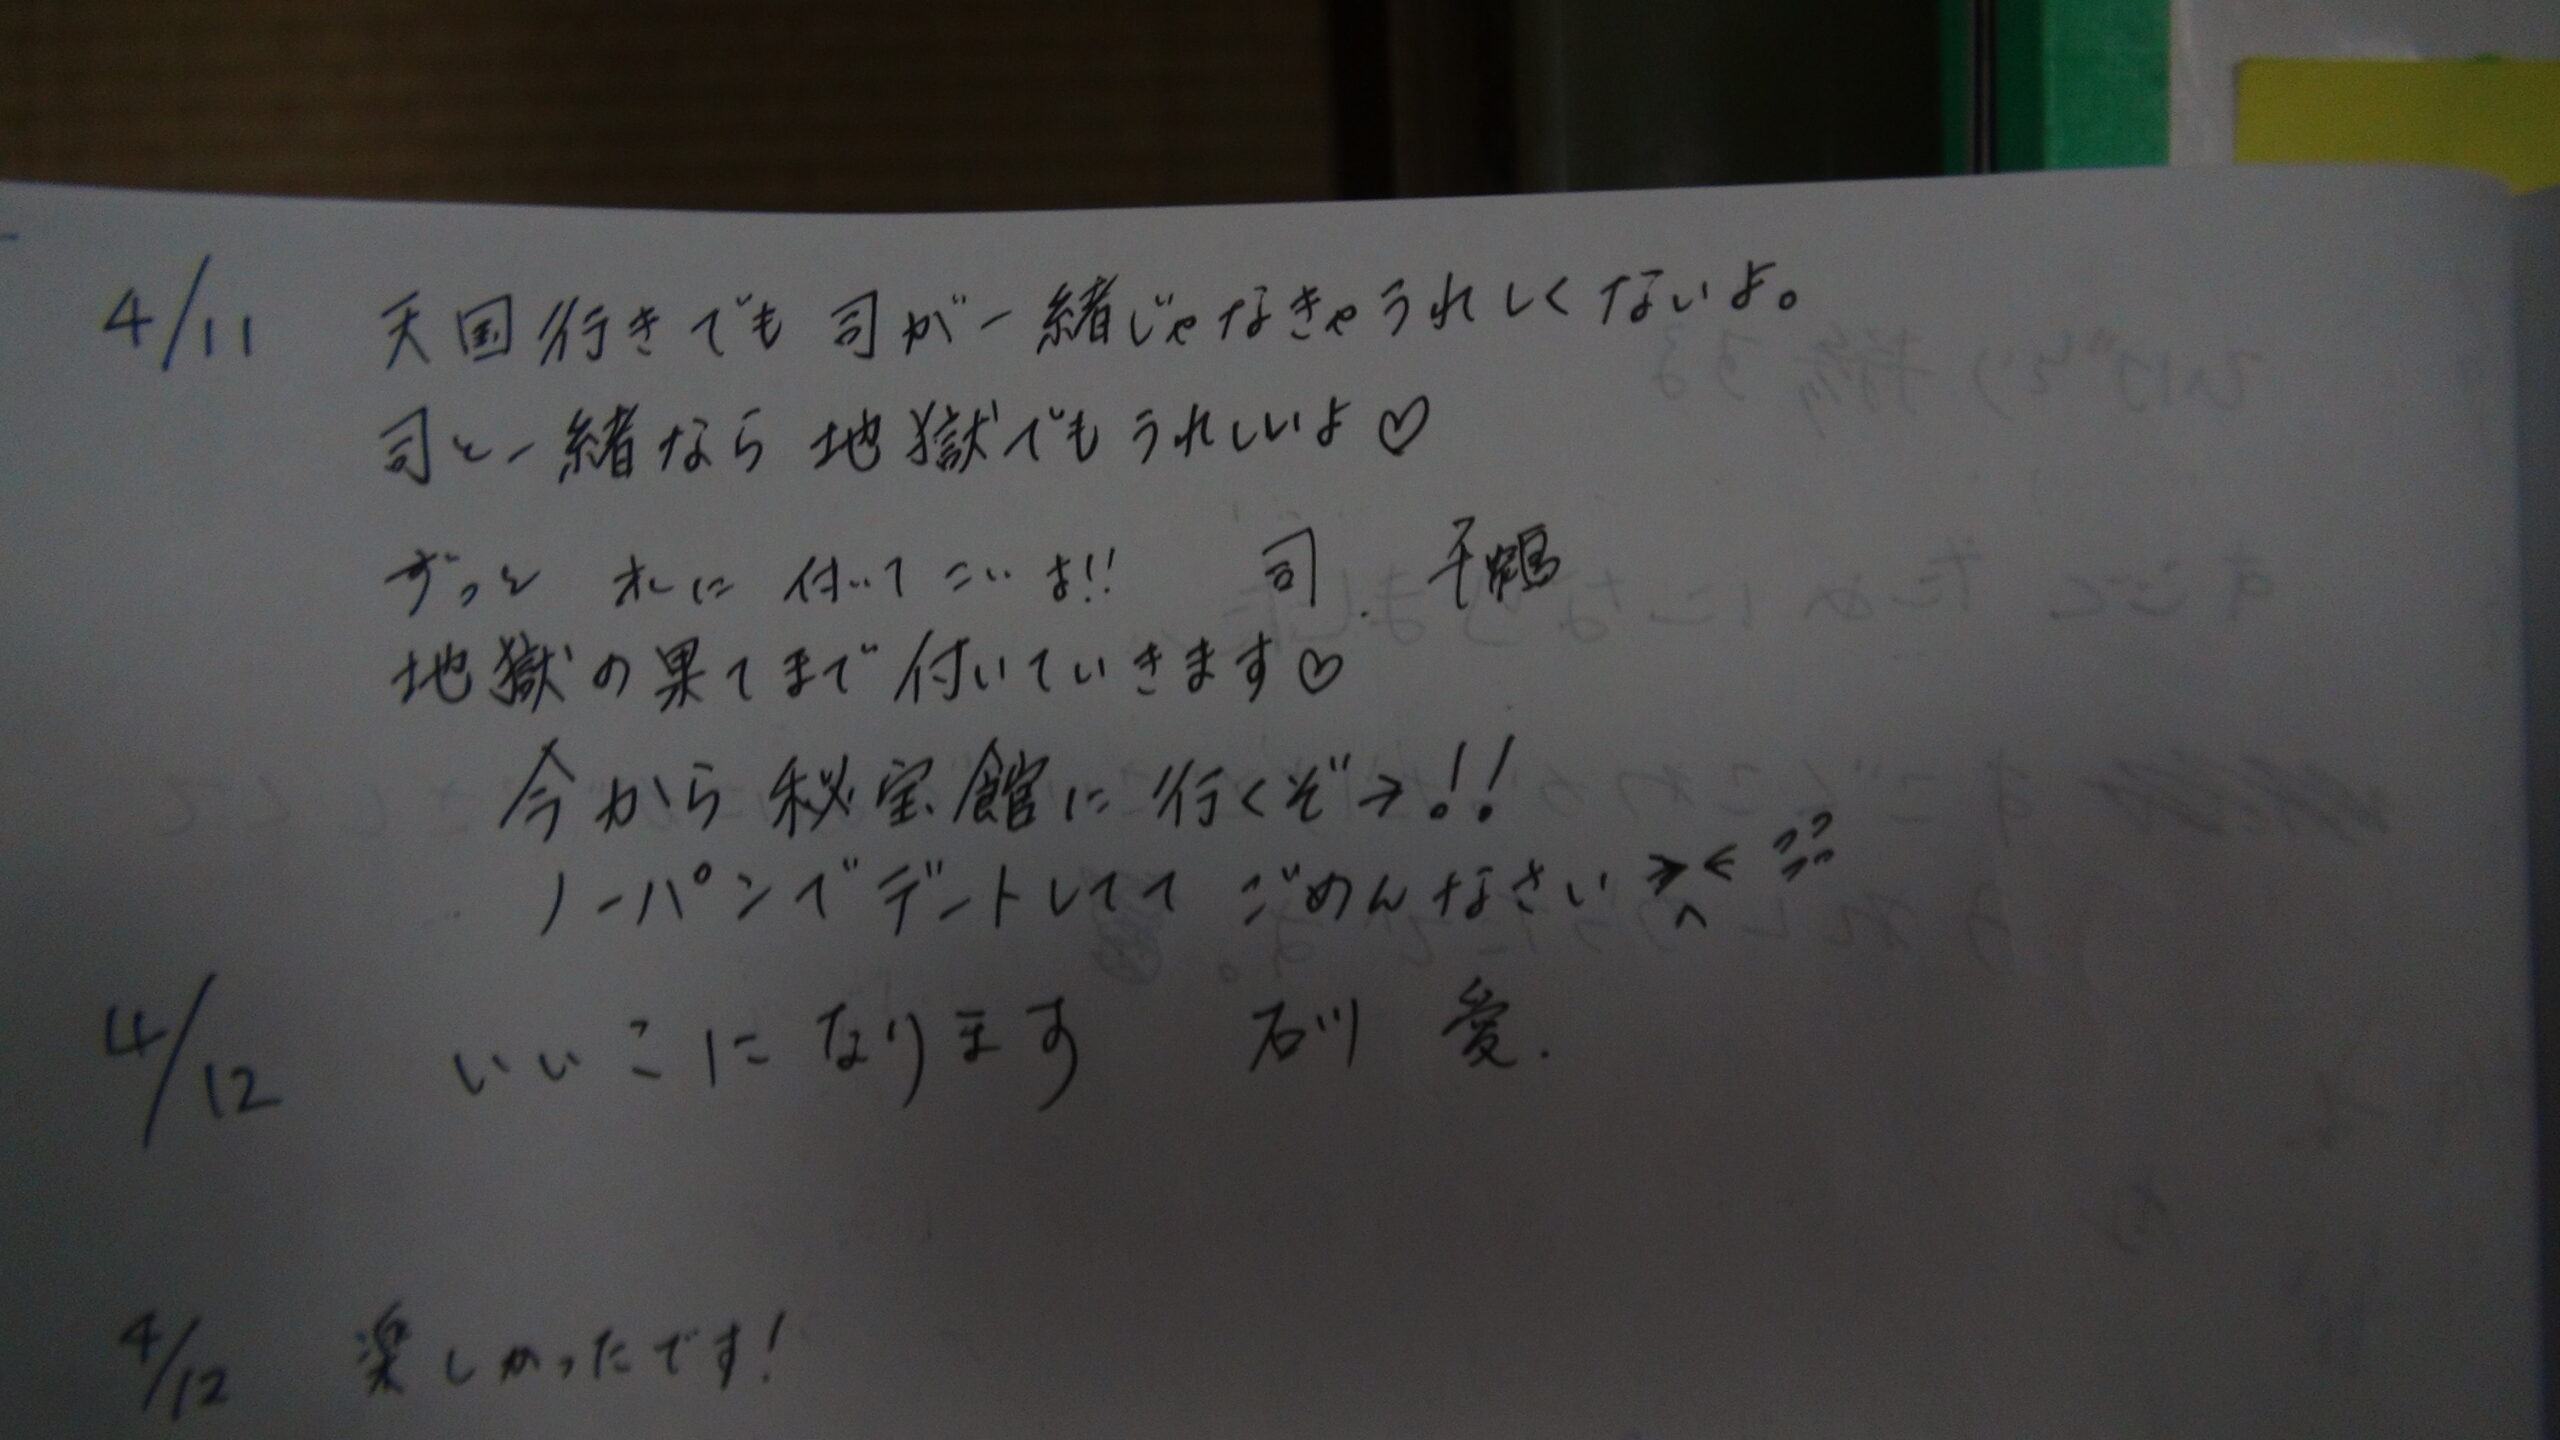 4/11 天国行きでも司が一緒じゃなきゃうれしくないよ。
司と一緒なら地獄でもうれしいよ♡
ずっと オレに 付いてこいよ!! 司. 千鶴
地獄の果てまで付いていきます♡
今から秘宝館に行くぞ→!!
ノーパンでデートしてて ごめんなさい
4/12 いいこになります 石川 愛.
4/12 楽しかったです!